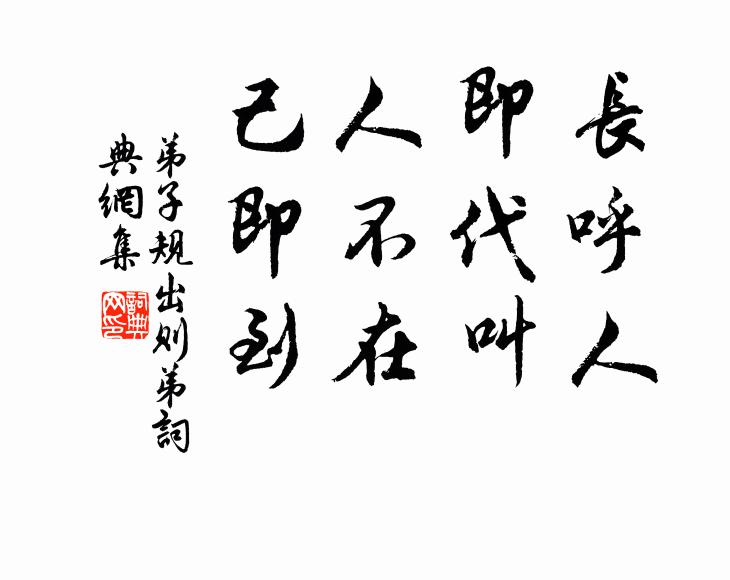 長呼人
即代叫
人不在
己即到
弟子規出則弟詞
典網集
詞典
网印